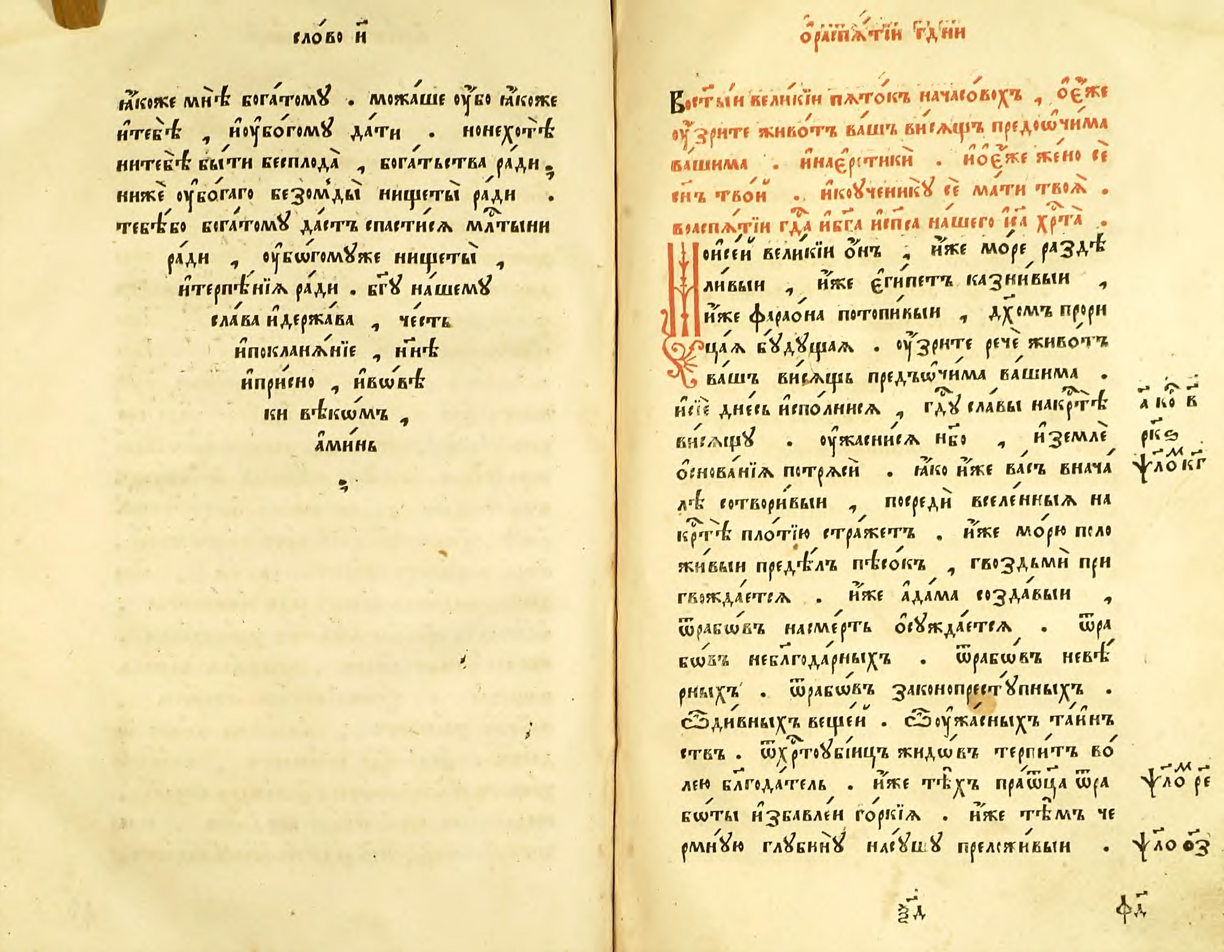 сло́во и҃
ꙗ҆́коже мнѣ̀ бога́томꙋ . мо́жаше ᲂу҆́бо ꙗ҆́коже
и҆тебѣ̀ , и҆ᲂу҆бо́гомꙋ да́ти . нонехотѣ̀
нитебѣ̀ бы́ти бесплода̀ , бога́тьства ра́ди ,
нижѐ ᲂу҆бо́гаго безо́мды̀ нищеты̀ ра́ди .
тебѣ́бо бога́томꙋ да́стъ спасти́сѧ мл҃тыни
ра́ди , ᲂу҆бѡ́гомꙋже нищеты̀ ,
и҆терпѣ́нїѧ ра́ди . бг҃ꙋ на́шемꙋ
сла́ва и҆держа́ва , че́сть
и҆покланѧ́нїе , нн҃ѣ
и҆при́сно , и҆вѡ́вѣ
ки вѣкѡ́мъ ,
а҆ми́нь
ѡ҆распѧ́тїи гд҃ни
Востыи вели́кїи пѧ́токъ начасо́вохъ , ѻ҆е́же
ᲂу҆́зрите живо́тъ ва́шъ висѧ́щъ предоѡ҆чи́ма
ва́шима . и҆наєретикѝ . и҆ѻ҆е́же же́но сѐ
сн҃ъ тво́й . и҆коученикꙋ̀ сѐ ма́ти твоѧ̀ .
вораспѧ́тїи гд҃а и҆бг҃а и҆сп҃са на́шего і҆с҃а хрⷭ҇та̀ .
Мои҆се́й вели́кїи ѻ҆́нъ , и҆́же мо́ре раздѣ
ли́выи , и҆́же є҆гѵ́петъ казни́выи ,
и҆́же фарао́на потопи́выи , дх҃омъ прори
ца́ѧ бꙋ́дꙋщаѧ . ᲂу҆́зрите речѐ живо́тъ
ва́шъ висѧ́щь предъѡ҆чи́ма ва́шима .
и҆сїѐ дне́сь и҆спо́лнисѧ , гд҃ꙋ сла́вы накрⷭ҇тѣ̀
висѧ́щꙋ . ᲂу҆жасни́сѧ нб҃о , и҆землѐ
ѻ҆снова́нїѧ потрѧсѝ . ꙗ҆́ко и҆́же ва́съ внача́
лѣ сотвори́выи , посредѝ вселе́нныѧ на
крⷭ҇тѣ̀ пло́тїю стра́жетъ . и҆́же мо́рю поло
жи́выи предѣ́лъ пѣсо́къ , гвоздьмѝ при
гвожда́етсѧ . и҆́же а҆да́ма созда́выи ,
ѿрабѡ́въ насме́рть ѡ҆сꙋжда́етсѧ . ѿра
бѡ́въ небл҃года́рныхъ . ѿрабѡ́въ невѣ́
рныхъ . ѿрабѡ́въ законопрестꙋ́пныхъ .
ѽди́вныхъ веще́й . ѽᲂу҆жа́сныхъ та́инъ
ствъ . ѿхрⷭ҇тоубі́ицъ жидѡ́въ терпи́тъ во́
лею бл҃года́тель . и҆́же тѣ́хъ праѿц҃а ѿра
бѡ́ты и҆зба́влеи го́ркїѧ . и҆́же тѣ́мъ че
рмнꙋ́ю глꙋбинꙋ̀ насꙋ́шꙋ прело́живыи .
а҃ коⷬ҇ в҃
рк҃ѕ
ѱаⷧ҇оⷨ к҃г
ѱаⷧ҇оⷨ р҃е
ѱаⷧ҇о о҃з
ѯ҃д
ф҃д